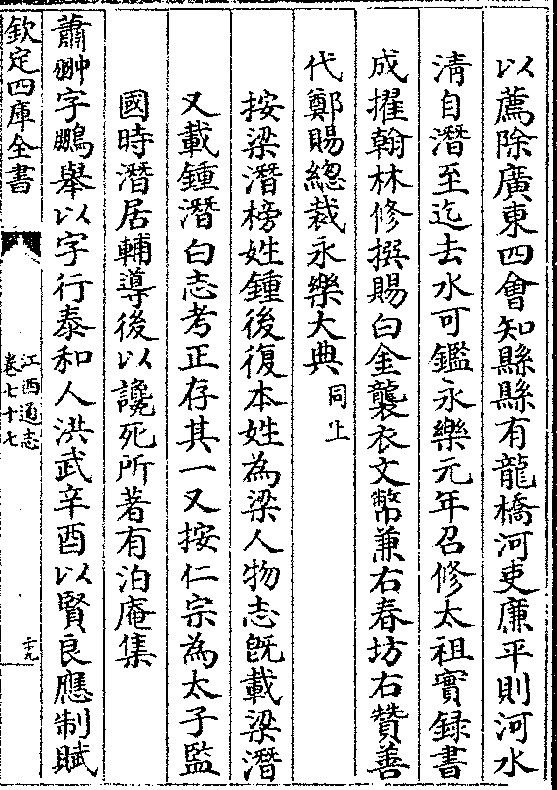 以薦除廣東四會知縣縣有龍橋河吏廉平則河水
清自潛至迄去水可鑑永樂元年召修太祖實録書
成擢翰林修撰賜白金襲衣文幣兼右春坊右贊善
代鄭賜總裁永樂大典同上
按梁潛榜姓鍾後復本姓為梁人物志既載梁潛
又載鍾潛白志考正存其一又按仁宗為太子監
國時潛居輔導後以讒死所著有泊庵集
蕭翀字鵬舉以字行泰和人洪武辛酉以賢良應制賦
欽定四庫全書
江西通志
卷七十七
二十九